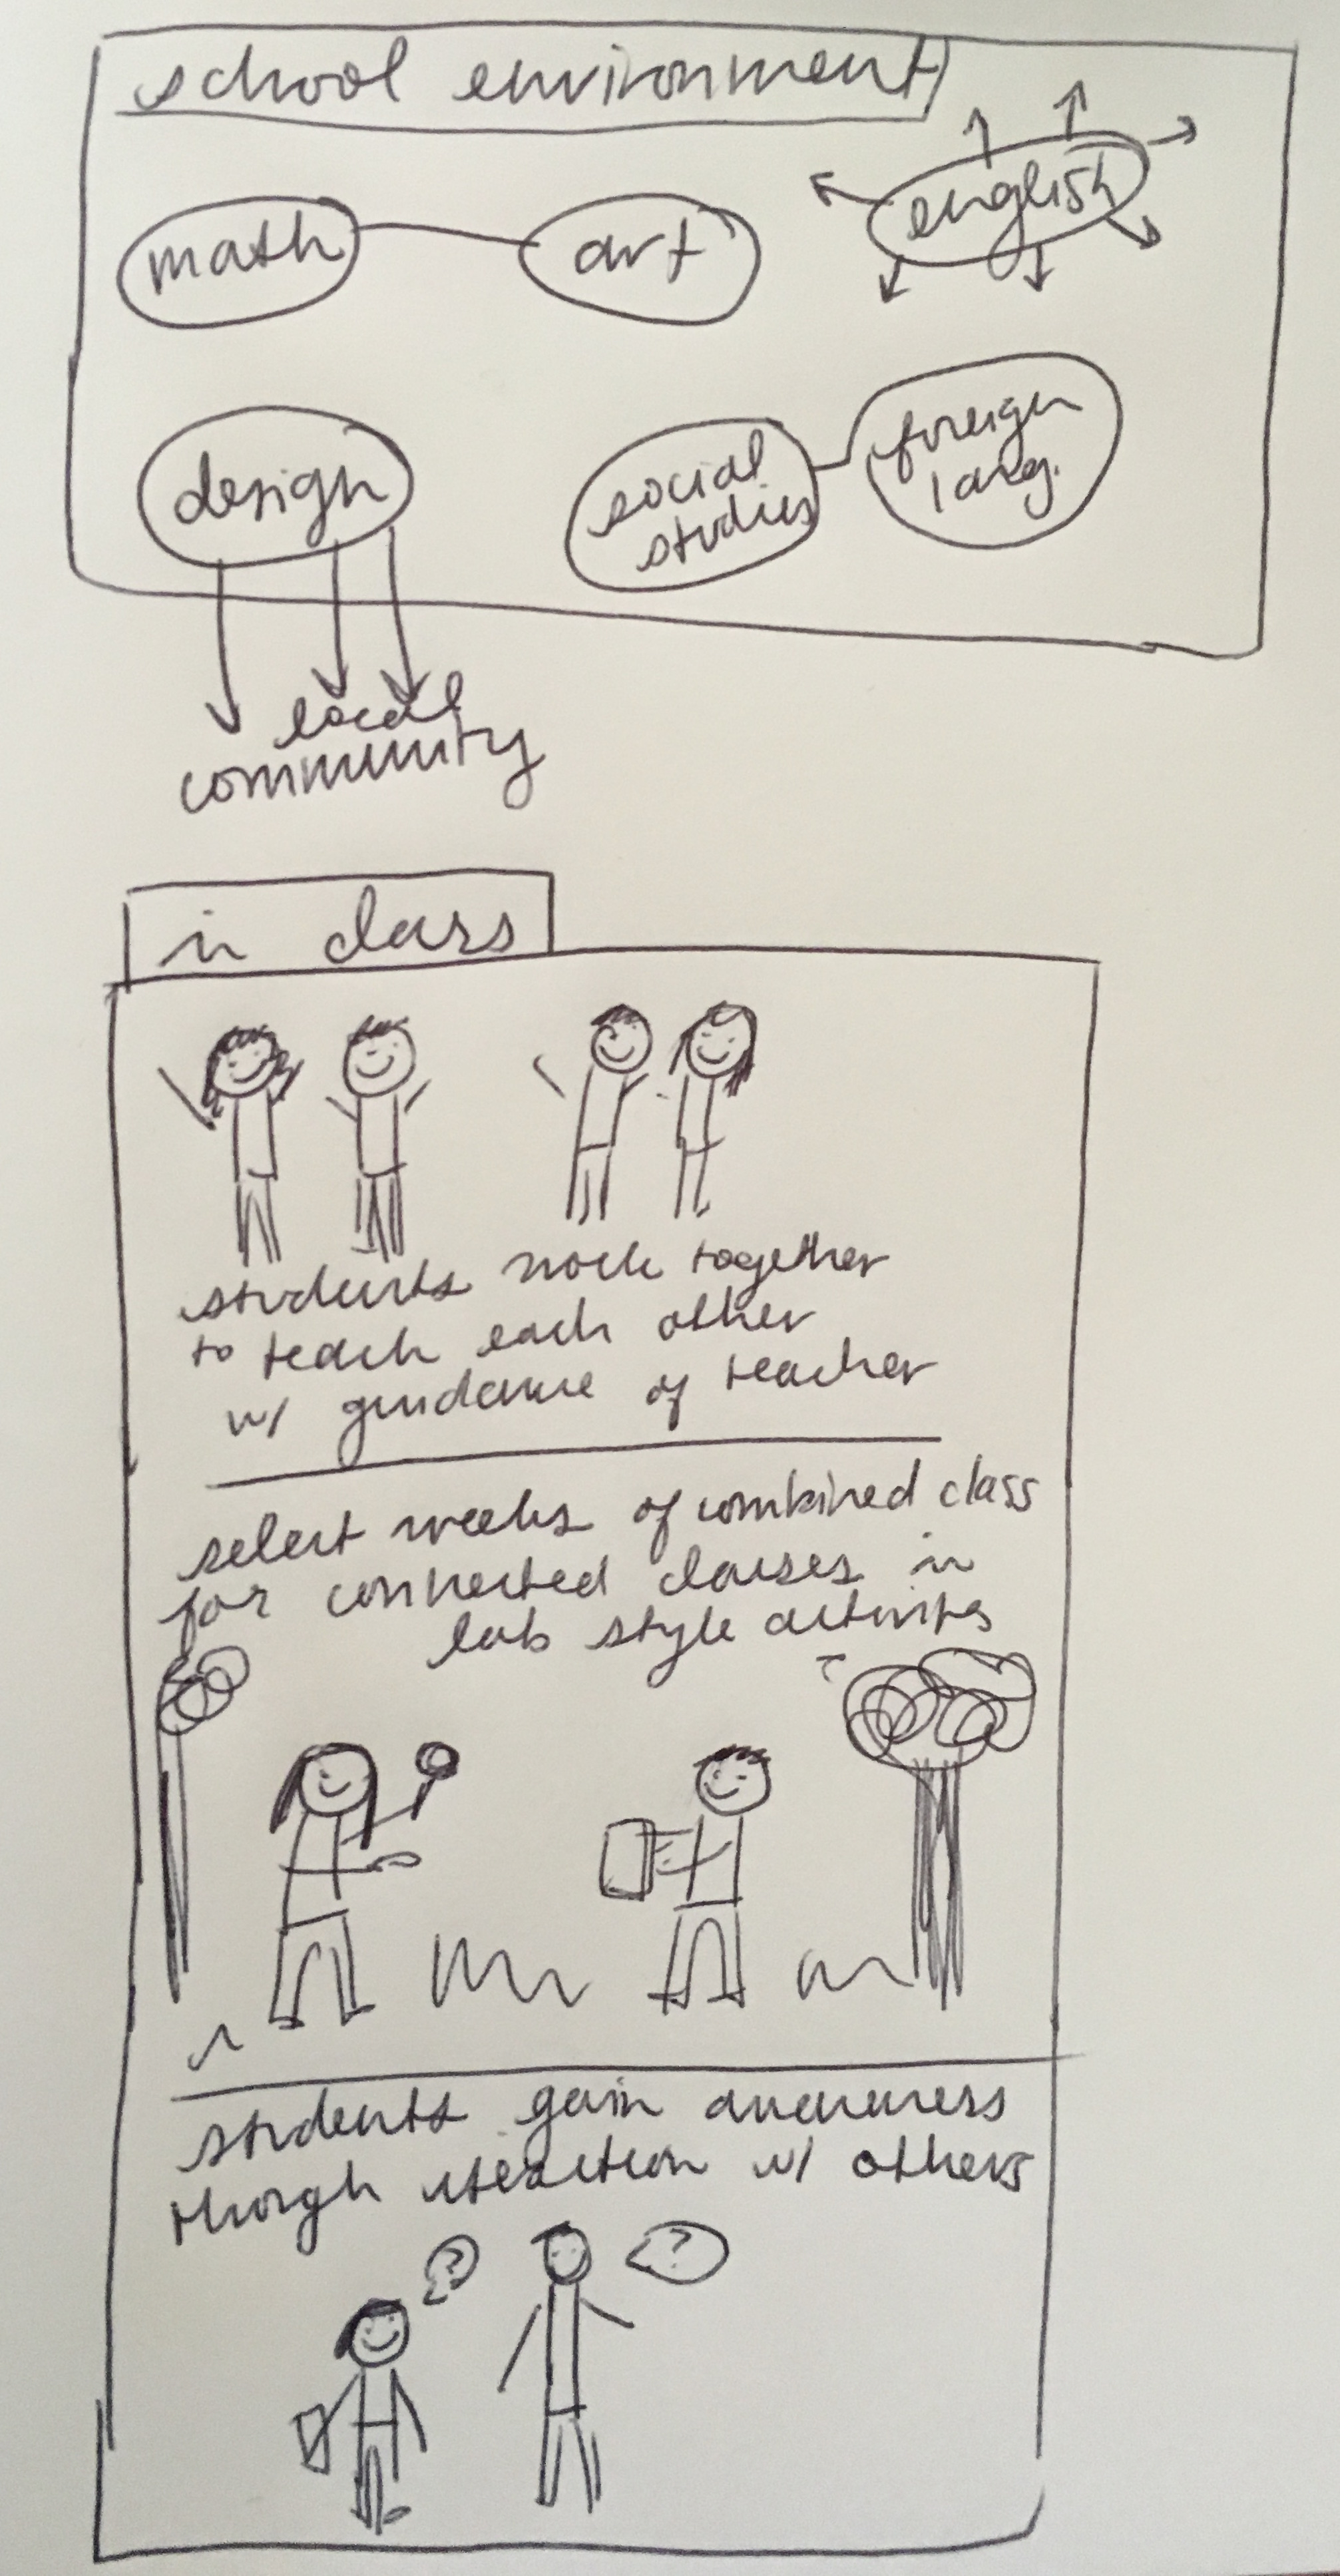 school environment
math
art
english
design
social
studies
foreign
lang.
local
community
in class
students work together
to teach each other
w/ guidance of teacher
select weeks of combined class
for connected classes in
lab style activites
students gain awareness
through interaction w/ others
?
?